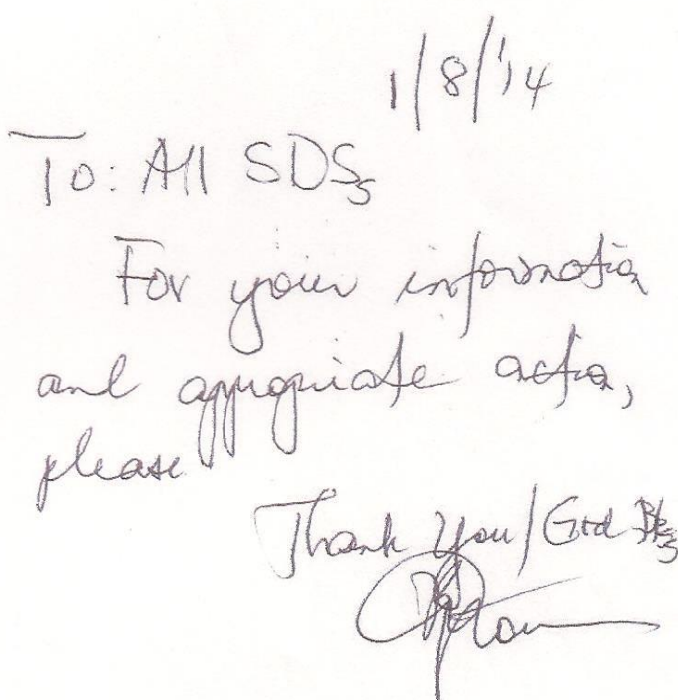 1/8/'14
To: All SDSs
For your information
and appropriate action,
please.
Thank You/God Bless